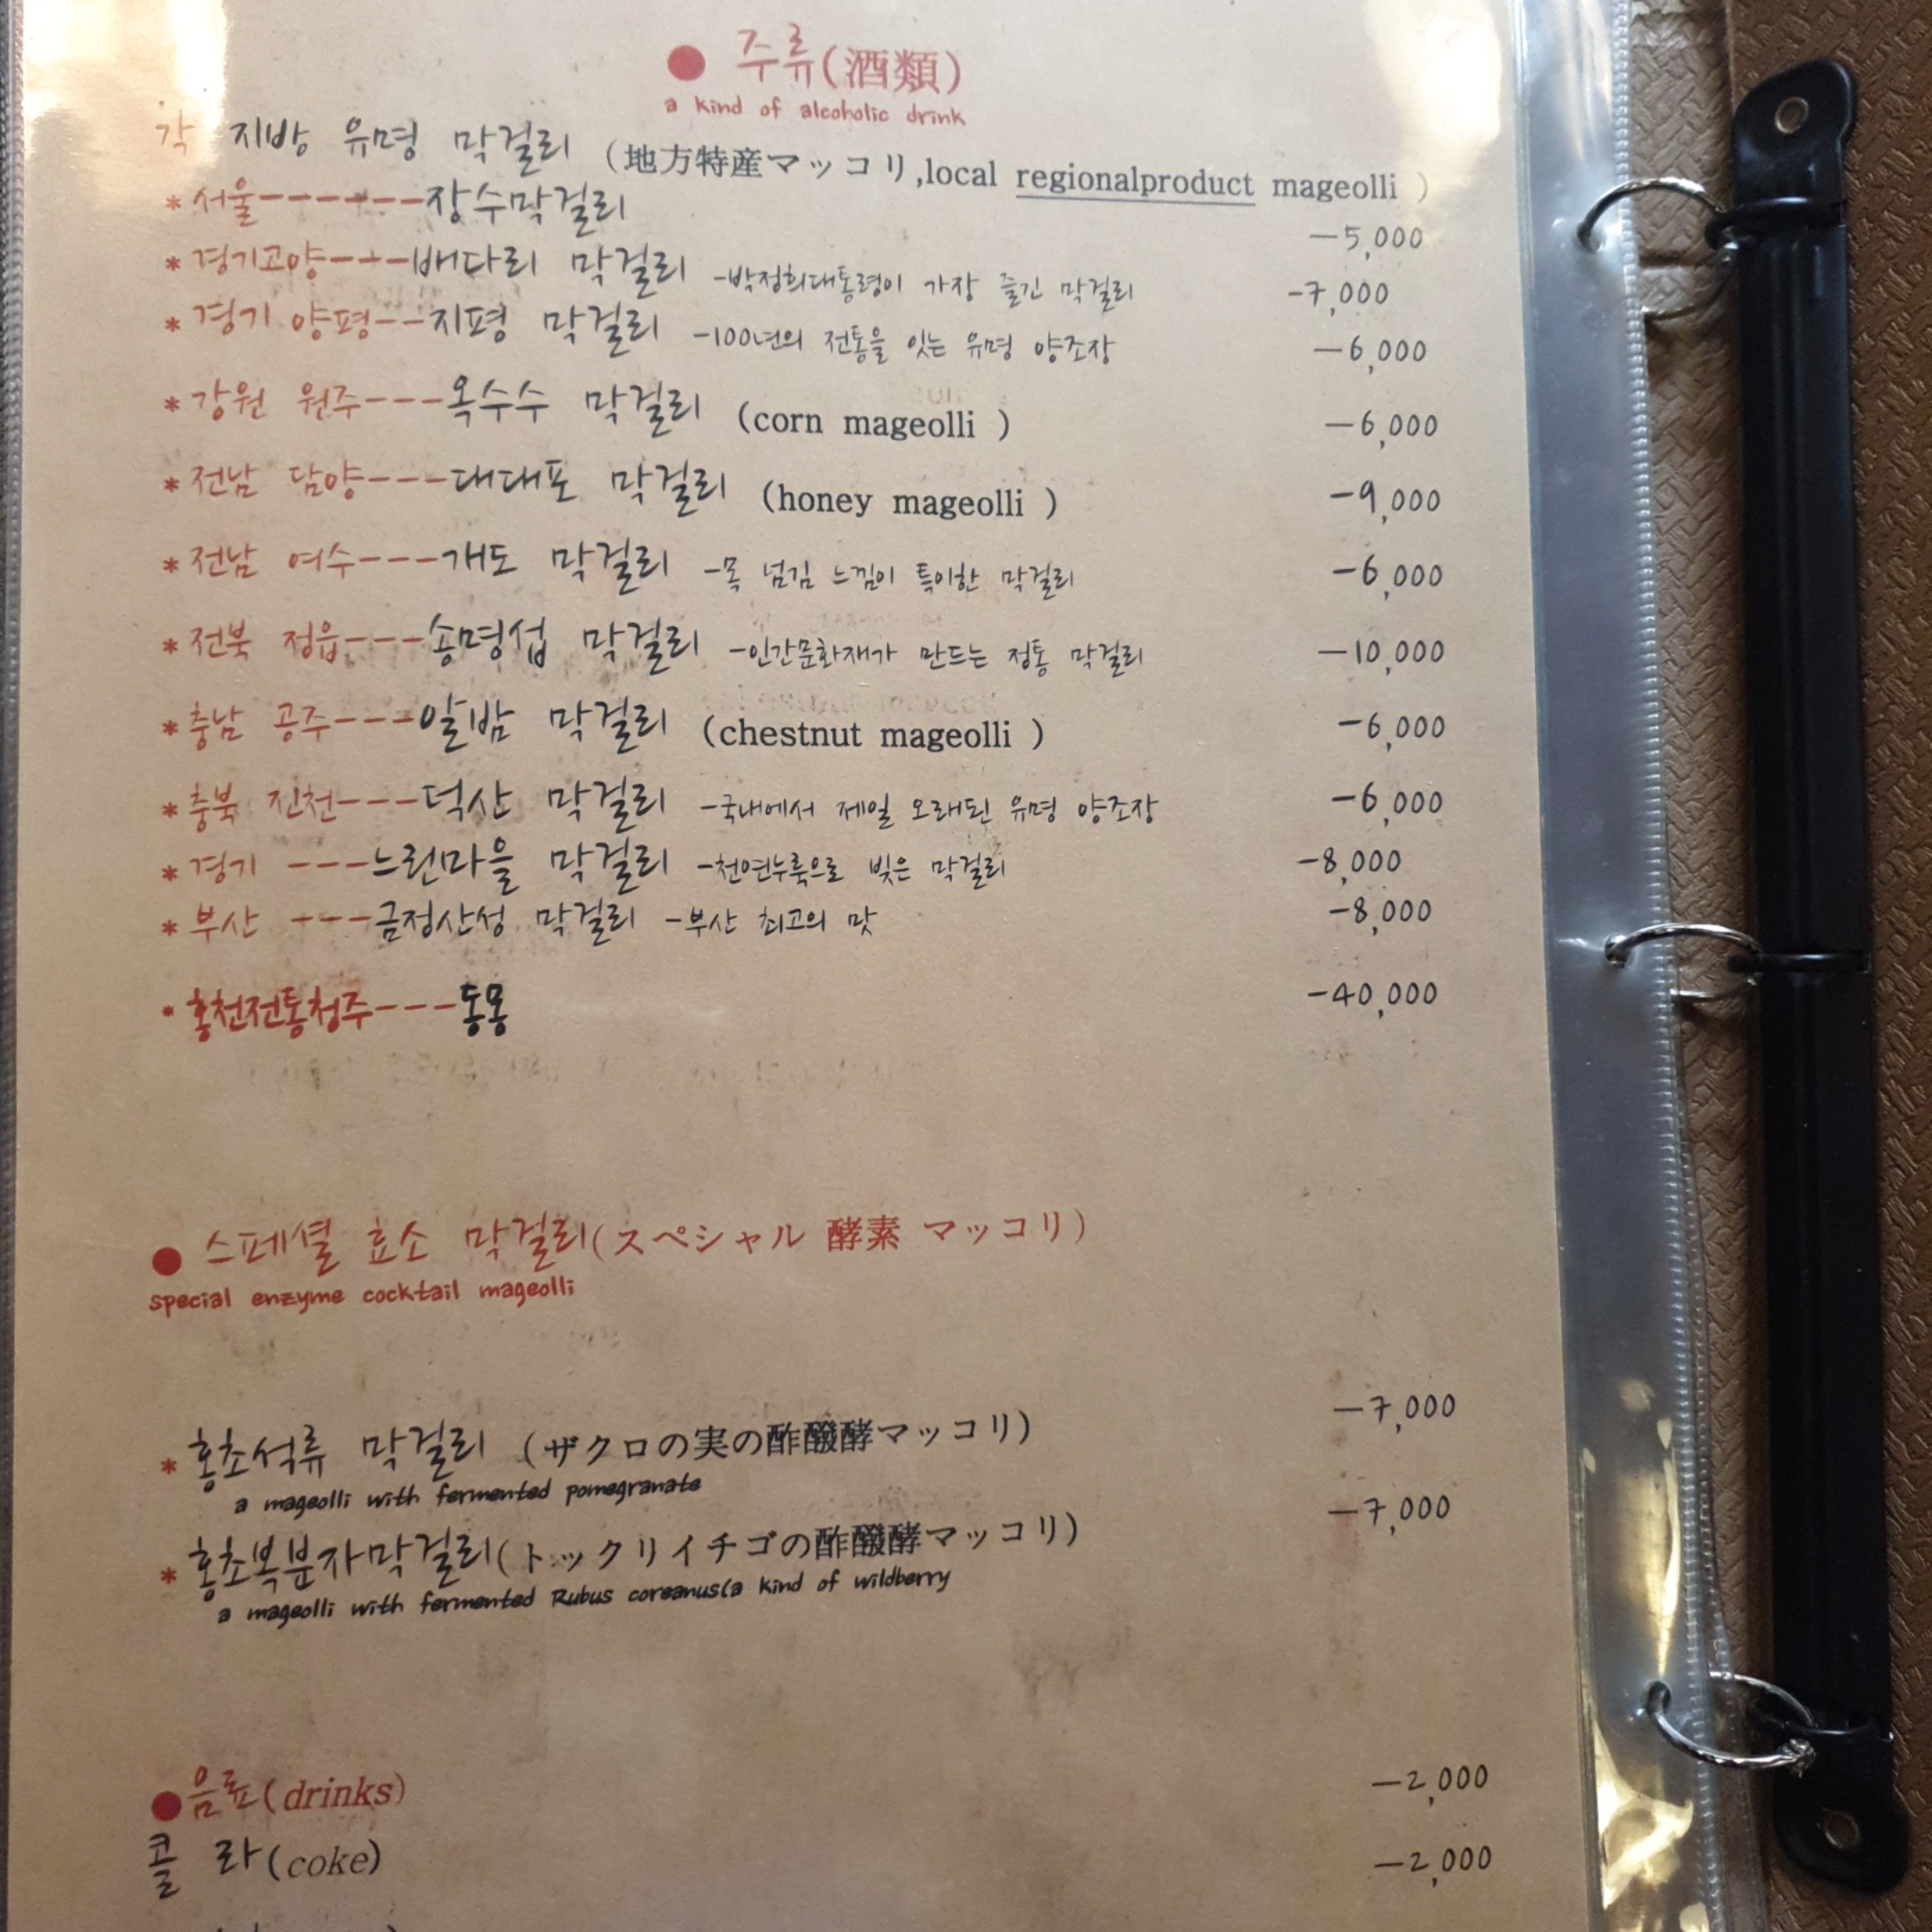 ● 주류(酒類)
a kind of alcoholic drink
각 지방 유명 막걸리 (地方特産マッコリ,local regionalproduct mageolli )
* 서울------장수막걸리 -5,000
* 경기고양---배다리 막걸리 -박정희대통령이 가장 즐긴 막걸리 -7,000
* 경기 양평--지평 막걸리 -100년의 전통을 잇는 유명 양조장 -6,000
* 강원 원주---옥수수 막걸리 (corn mageolli ) -6,000
* 전남 담양---대대포 막걸리 (honey mageolli ) -9,000
* 전남 여수---개도 막걸리 -목 넘김 느낌이 특이한 막걸리 -6,000
* 전북 정읍---송명섭 막걸리 -인간문화재가 만드는 정통 막걸리 -10,000
* 충남 공주---알밤 막걸리 (chestnut mageolli ) -6,000
* 충북 진천---덕산 막걸리 -국내에서 제일 오래된 유명 양조장 -6,000
* 경기 ---느린마을 막걸리 -천연누룩으로 빚은 막걸리 -8,000
* 부산 ---금정산성 막걸리 -부산 최고의 맛 -8,000
* 홍천전통청주---동몽 -40,000
● 스페셜 효소 막걸리(スペシャル 酵素 マッコリ)
special enzyme cocktail mageolli
* 홍초석류 막걸리 (ザクロの実の酢醱酵マッコリ) -7,000
a mageolli with fermented pomegranate
* 홍초복분자막걸리(トックリイチゴの酢醱酵マッコリ) -7,000
a mageolli with fermented Rubus coreanus(a kind of wildberry
● 음료(drinks) -2,000
콜 라(coke) -2,000